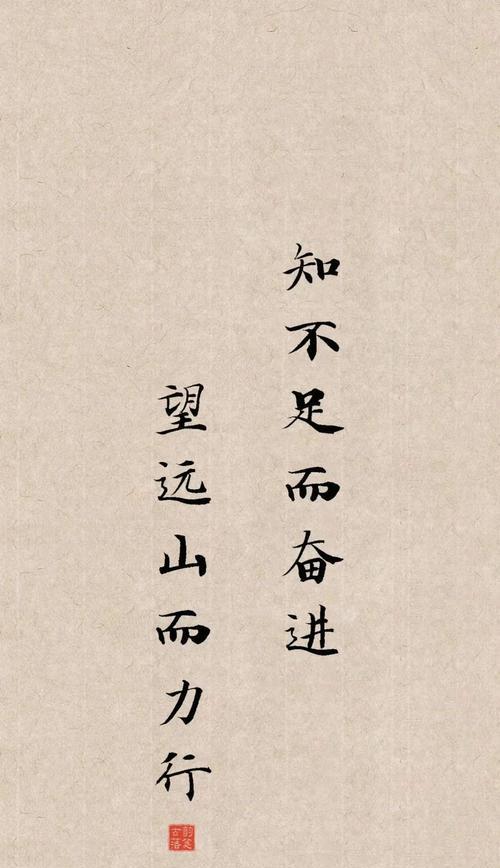 知不足而奋进
望远山而力行